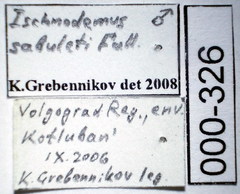 Ischnodemus ♂
sabuleti Fall.
K.Grebennikov det 2008
Volgograd Reg., env.
Kotluban'
IX.2006
K. Grebennikov leg.
000-326